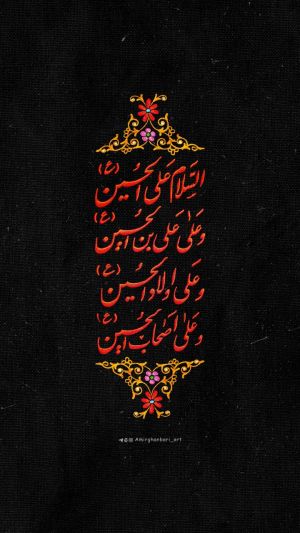 السَّلامُ عَلَی الحُسَین (ع)
وَعَلیٰ عَلیِ بنِ الحُسَین (ع)
وَعَلیٰ اَولادِ الحُسَین (ع)
وَعَلیٰ اَصحابِ الحُسَین (ع)
Amirghanbari_art